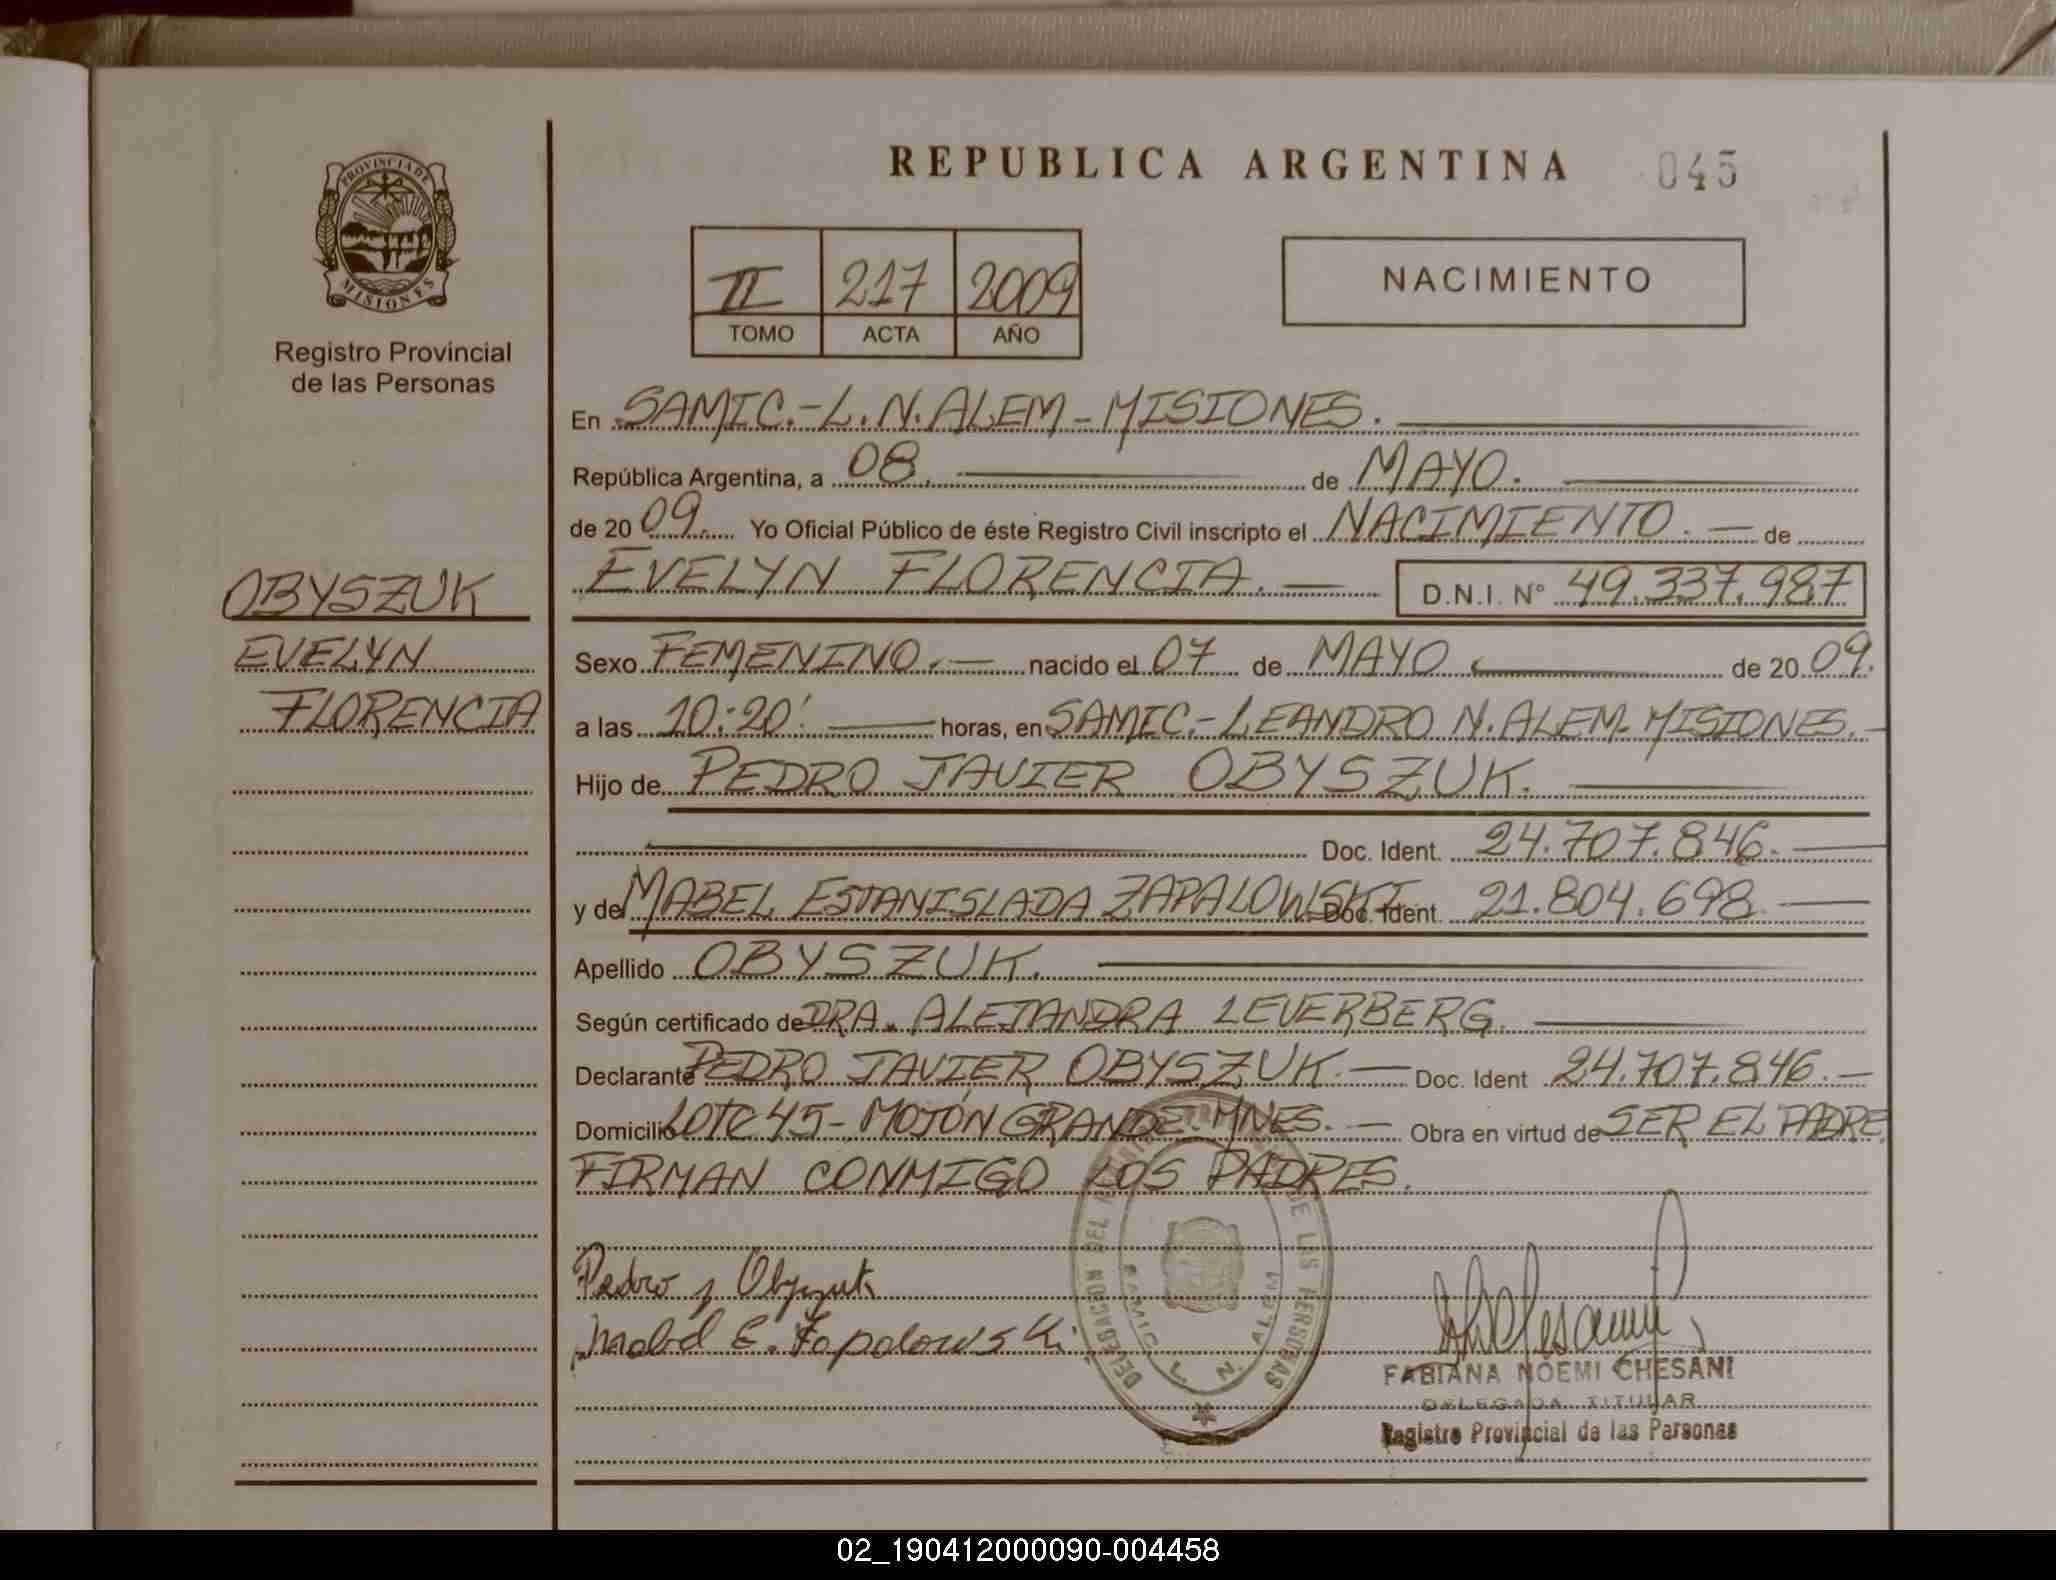 REPUBLICA ARGENTINA 045
PROVINCIA DE
MISIONES
Registro Provincial
de las Personas
II 217 2009
TOMO ACTA AÑO
NACIMIENTO
En SAMIC.-L.N.ALEM-MISIONES.
República Argentina, a 08. de MAYO.
de 20 09. Yo Oficial Público de éste Registro Civil inscripto el NACIMIENTO. de
EVELYN FLORENCIA. D.N.I. Nº 49.337.987
OBYSZUK
EVELYN
FLORENCIA
Sexo FEMENINO. nacido el 07 de MAYO de 20 09.
a las 10:20' horas, en SAMIC.-LEANDRO N. ALEM-MISIONES.
Hijo de PEDRO JAVIER OBYSZUK.
Doc. Ident. 24.707.846.
y de MABEL ESTANISLADA ZAPALOWSKI Doc. Ident. 21.804.698
Apellido OBYSZUK.
Según certificado de DRA. ALEJANDRA LEVERBERG.
Declarante PEDRO JAVIER OBYSZUK. Doc. Ident 24.707.846.
Domicilio LOTE 45- MOJÓN GRANDE. MNES. Obra en virtud de SER EL PADRE.
FIRMAN CONMIGO LOS PADRES.
Pedro J Obyszuk
Mabel E. Zapalowski
DELEGACION DEL REGISTRO PROVINCIAL DE LAS PERSONAS
SAMIC L. N. ALEM
FABIANA NOEMI CHESANI
DELEGADA TITULAR
Registro Provincial de las Personas
02_190412000090-004458